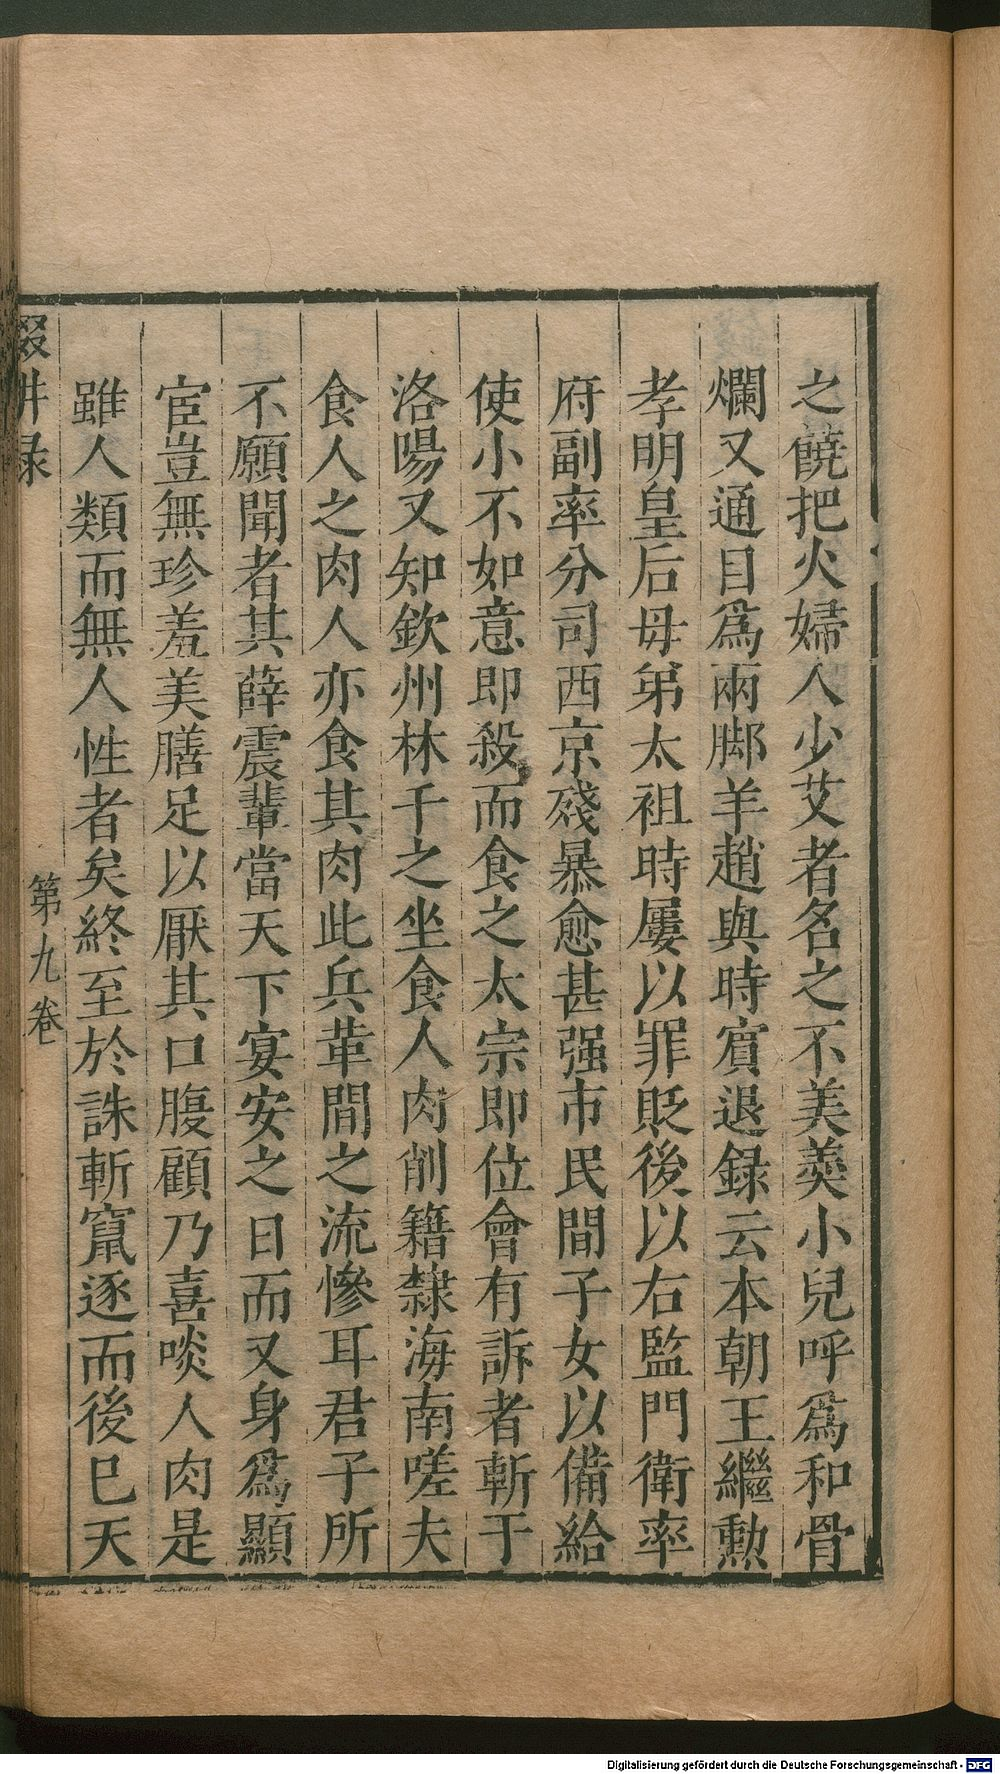 之饒把火婦人少艾者名之不美羹小兒呼爲和骨
爛又通目爲兩脚羊趙與時賓退録云本朝王繼勲
孝明皇后母弟太祖時屢以罪貶後以右監門衛率
府副率分司西京殘暴愈甚强市民間子女以備給
使小不如意即殺而食之太宗即位會有訴者斬于
洛陽又知欽州林千之坐食人肉削籍隸海南嗟夫
食人之肉人亦食其肉此兵革間之流慘耳君子所
不願聞者其薛震輩當天下宴安之日而又身爲顯
宦豈無珍羞美膳足以厭其口腹顧乃喜啖人肉是
雖人類而無人性者矣終至於誅斬竄逐而後已天
輟畊録
第九卷
Digitalisierung gefördert durch die Deutsche Forschungsgemeinschaft - DFG